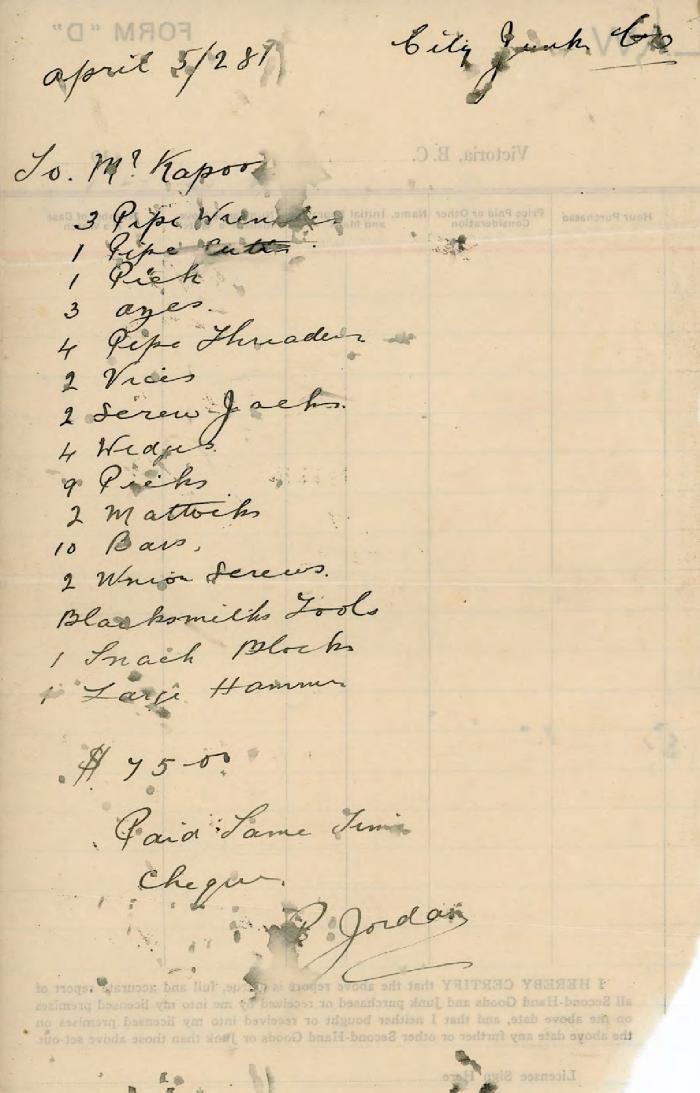 FORM "D"
City Junk Co
april 5/28
Victoria, B.C.
To. Mr Kapoor
Hour Purchased
Price Paid or Other Consideration
Name, Initial
3 Pipe Wrenches
1 Pipe Cutter.
1 Pick
3 axes.
4 Pipe Threader
2 Vices
2 Screw Jacks.
4 Wedges.
9 Picks
2 Mattocks
10 Bars.
2 Union Screws.
Blacksmiths Tools
1 Snach Blocks
1 Large Hammer
$ 75-00
Paid Same Time
Cheque.
Jordan
I HEREBY CERTIFY that the above report is a true, full and accurate report of
all Second-Hand Goods and Junk purchased or received by me into my licensed premises
on the above date, and that I neither bought or received into my licensed premises on
the above date any further or other Second-Hand Goods or Junk than those above set-out.
Licensee Sign Here